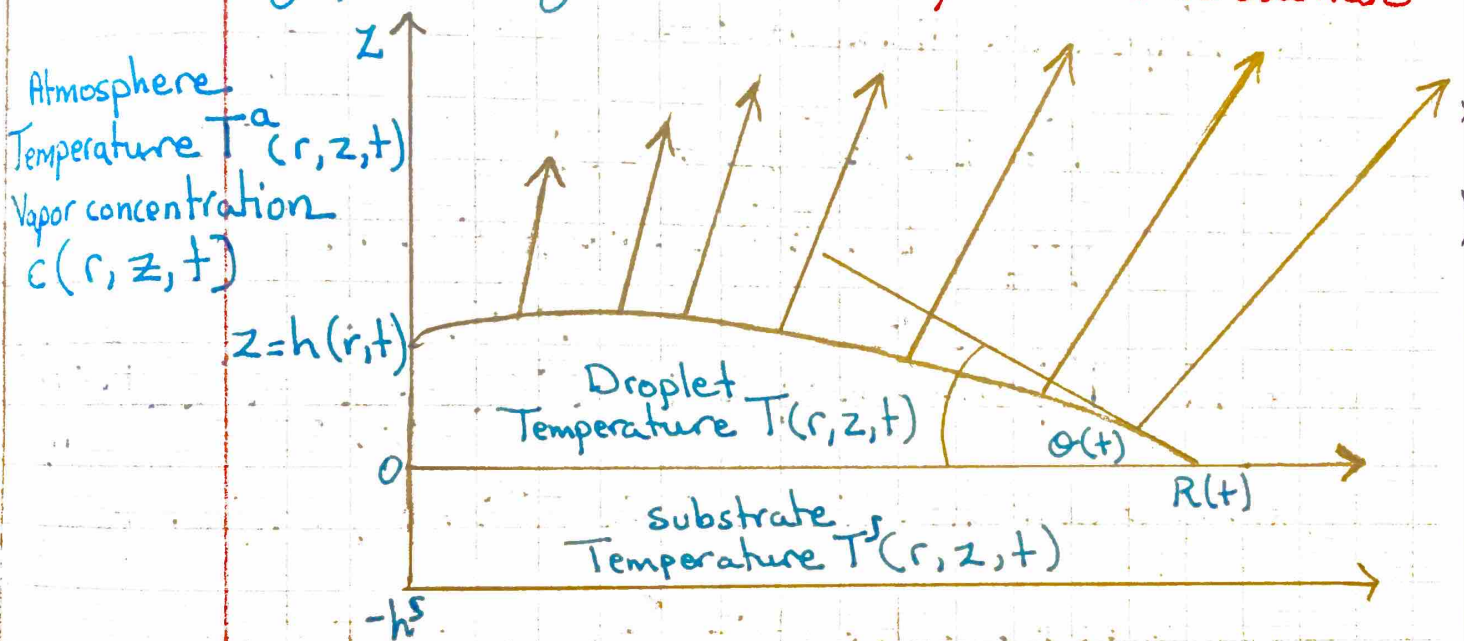 Z
Atmosphere
Temperature Tᵃ(r,z,t)
Vapor concentration
c(r,z,t)
z=h(r,t)
Droplet
Temperature T(r,z,t)
θ(t)
0
R(t)
substrate
Temperature Tˢ(r,z,t)
-hˢ